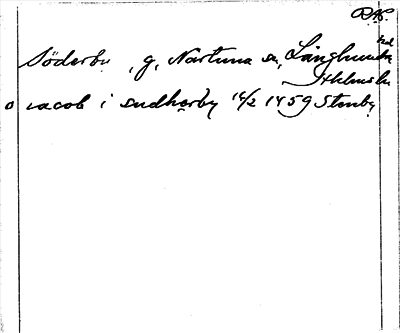 RAP.
Söderby, g, Närtuna sn, Långhundra hd
o iacob i sudherby 14/2 1459 Stenby